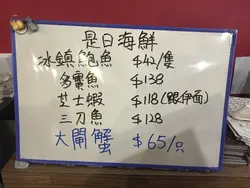 是日海鮮
冰鎮鮑魚 $42/隻
多寶魚 $138
芝士蝦 $118(跟伊面)
三刀魚 $128
大閘蟹 $65/只